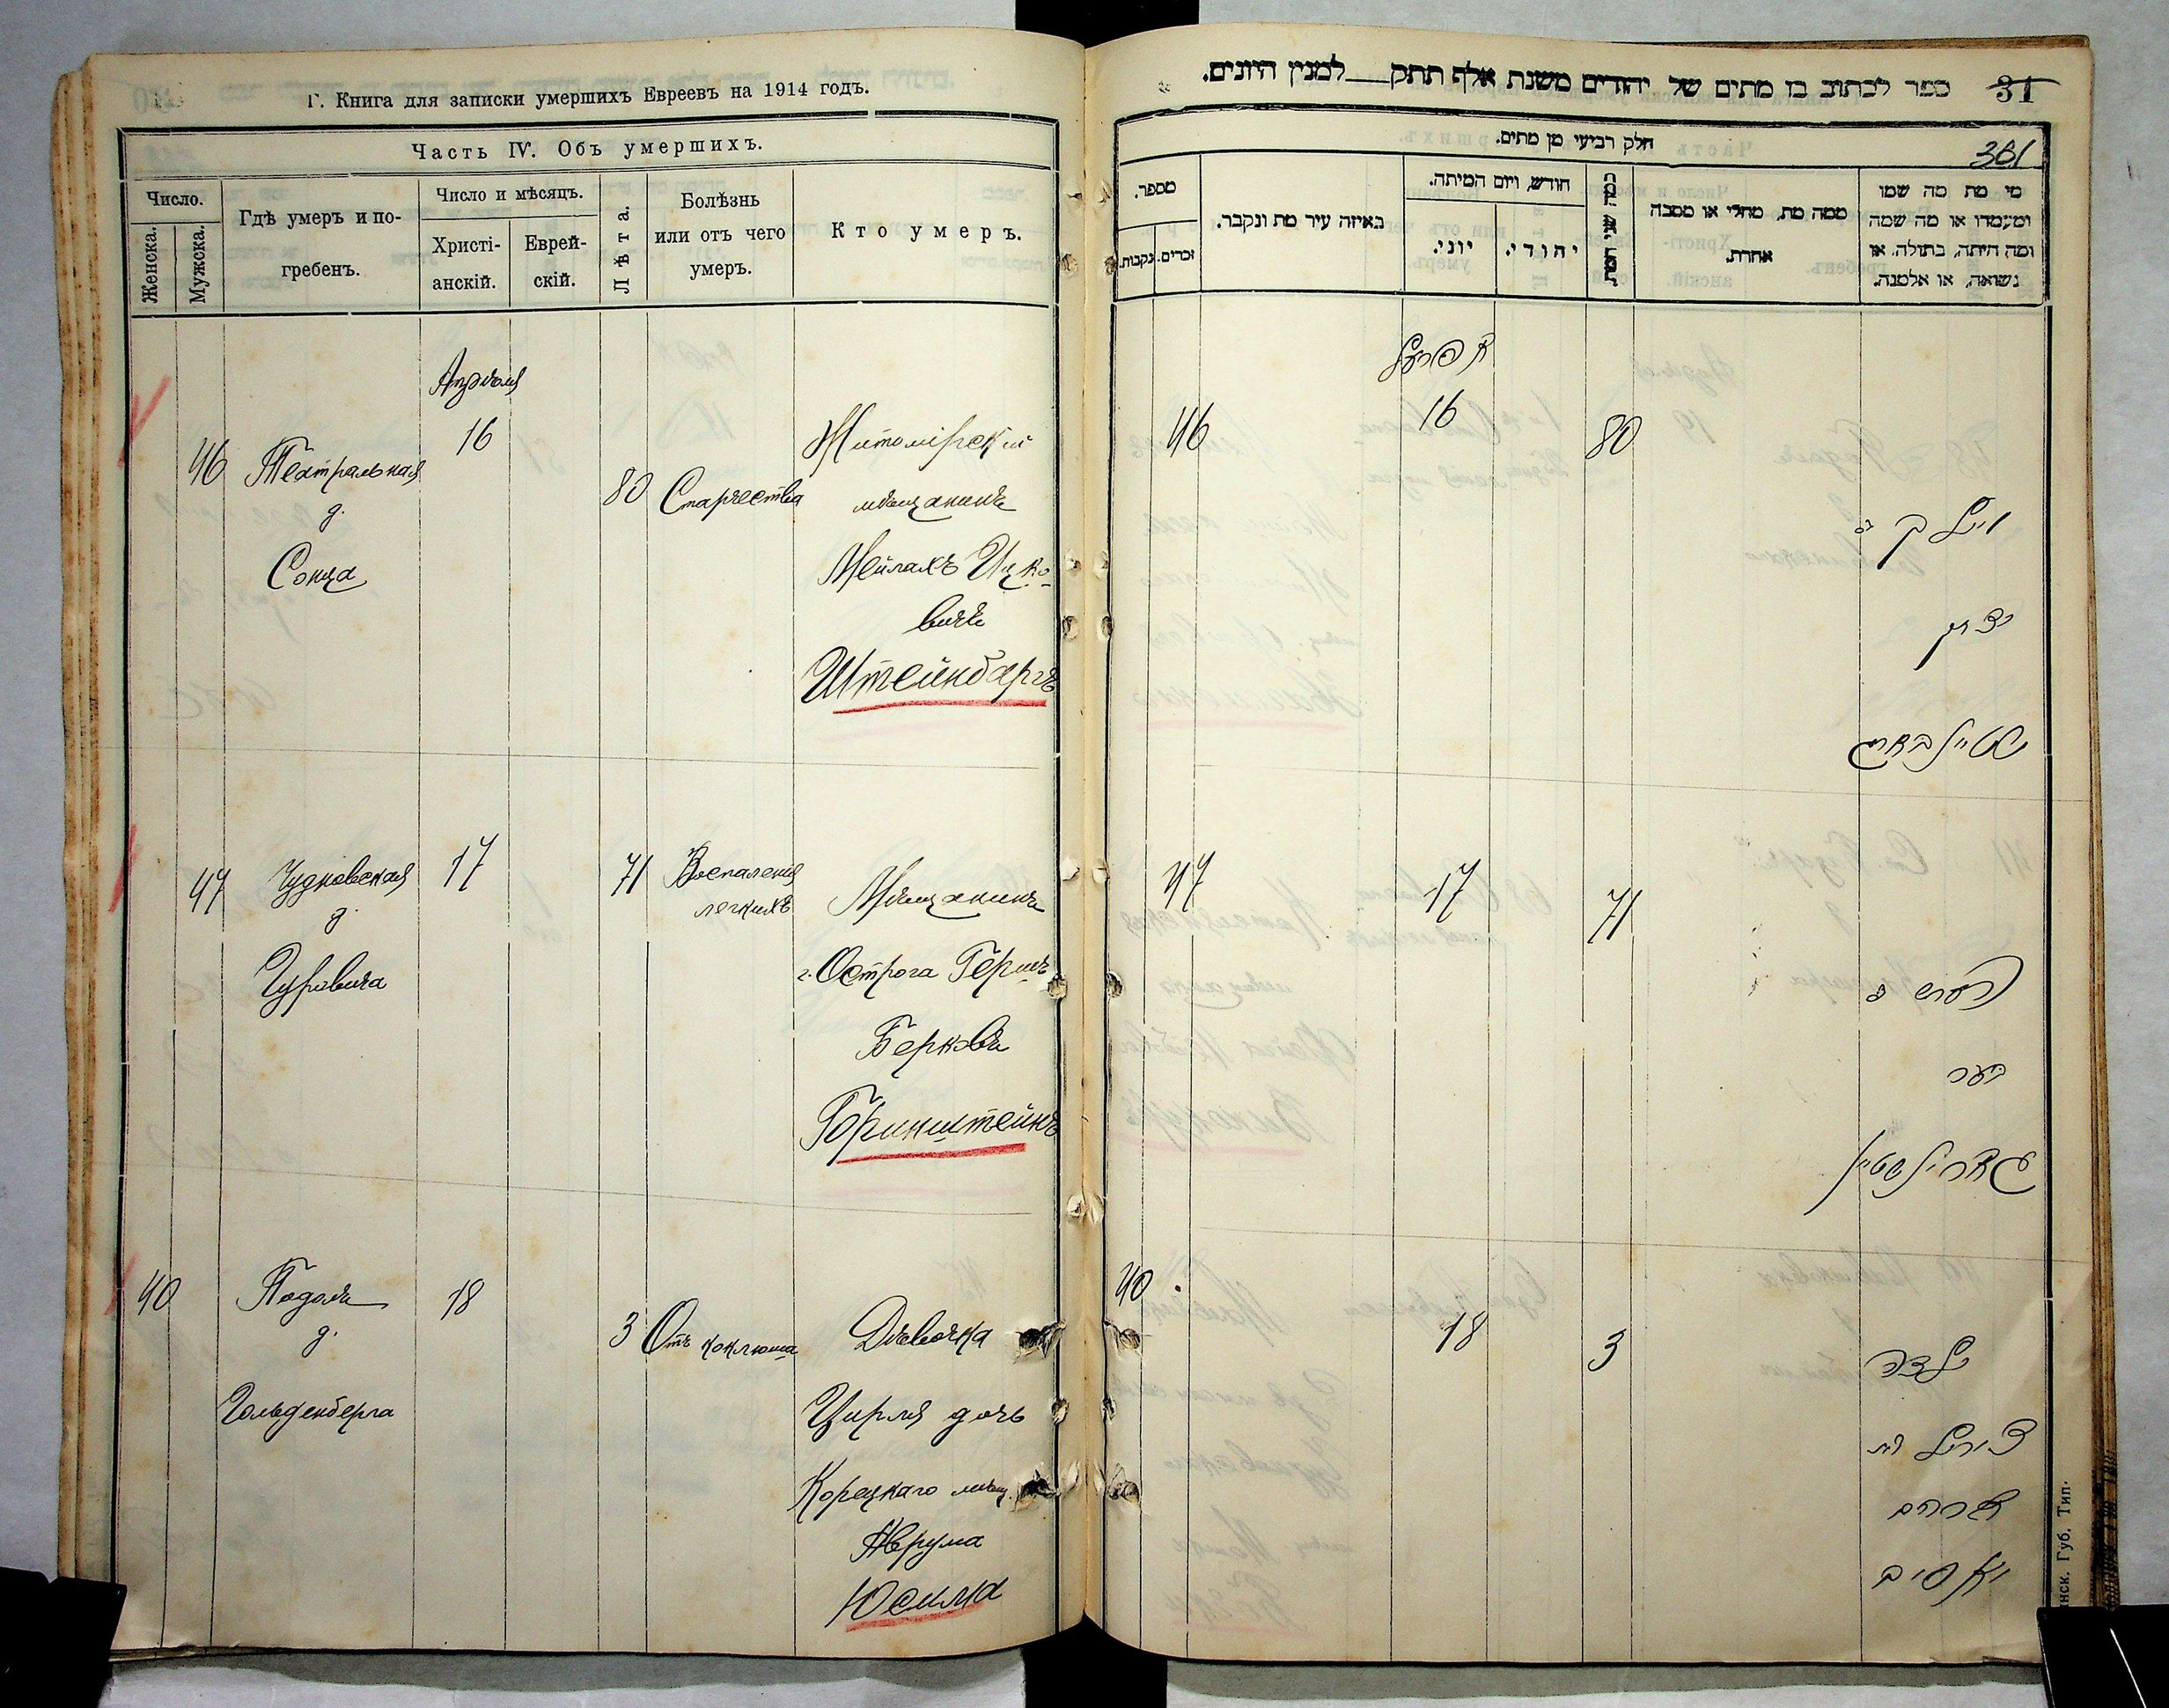 Г. Книга для записки умершихъ Евреевъ на 1914 годъ.
Часть IV. Объ умершихъ.
Число.
Женска.
Мужска.
Гдѣ умеръ и по-
гребенъ.
Число и мѣсяцъ.
Христі-
анскій.
Еврей-
скій.
Лѣта.
Болѣзнь
или отъ чего
умеръ.
Кто умеръ.
Апрѣля
46
Театральная
д.
Сонца
16
80
Старчества
Житомірскій
мѣщанинъ
Мейлахъ Ицко-
вичъ
Штейнбаргъ
47
Чудновская
д.
Гуровича
17
71
Воспаленія
легкихъ
Мѣщанинъ
г. Острога Гершъ
Берковъ
Горинштейнъ
40
Подоль
д.
Гольденберга
18
3
Отъ коклюша
Дѣвочка
Цирля дочь
Корецкаго мѣщ.
Аврума
Юсима
ספר לכתוב בו מתים של יהודים משנת אלף תתק למנין היונים.
31
361
חלק רביעי מן מתים.
מי מת מה שמו
ומעמדו או מה שמה
ומה היתה, בתולה, או
נשואה, או אלמנה.
ממה מת, מחלי או מסבה
אחרת.
כמה שני המת.
חודש, ויום המיתה.
יהודי.
יוני.
באיזה עיר מת ונקבר.
מספר.
זכרים.
נקבות.
אפריל
46
16
80
יצחק
שטיינבארג
47
17
71
הערש ב
בער
גארינשטיין
40
18
3
ילדה
צירל בת
אברהם